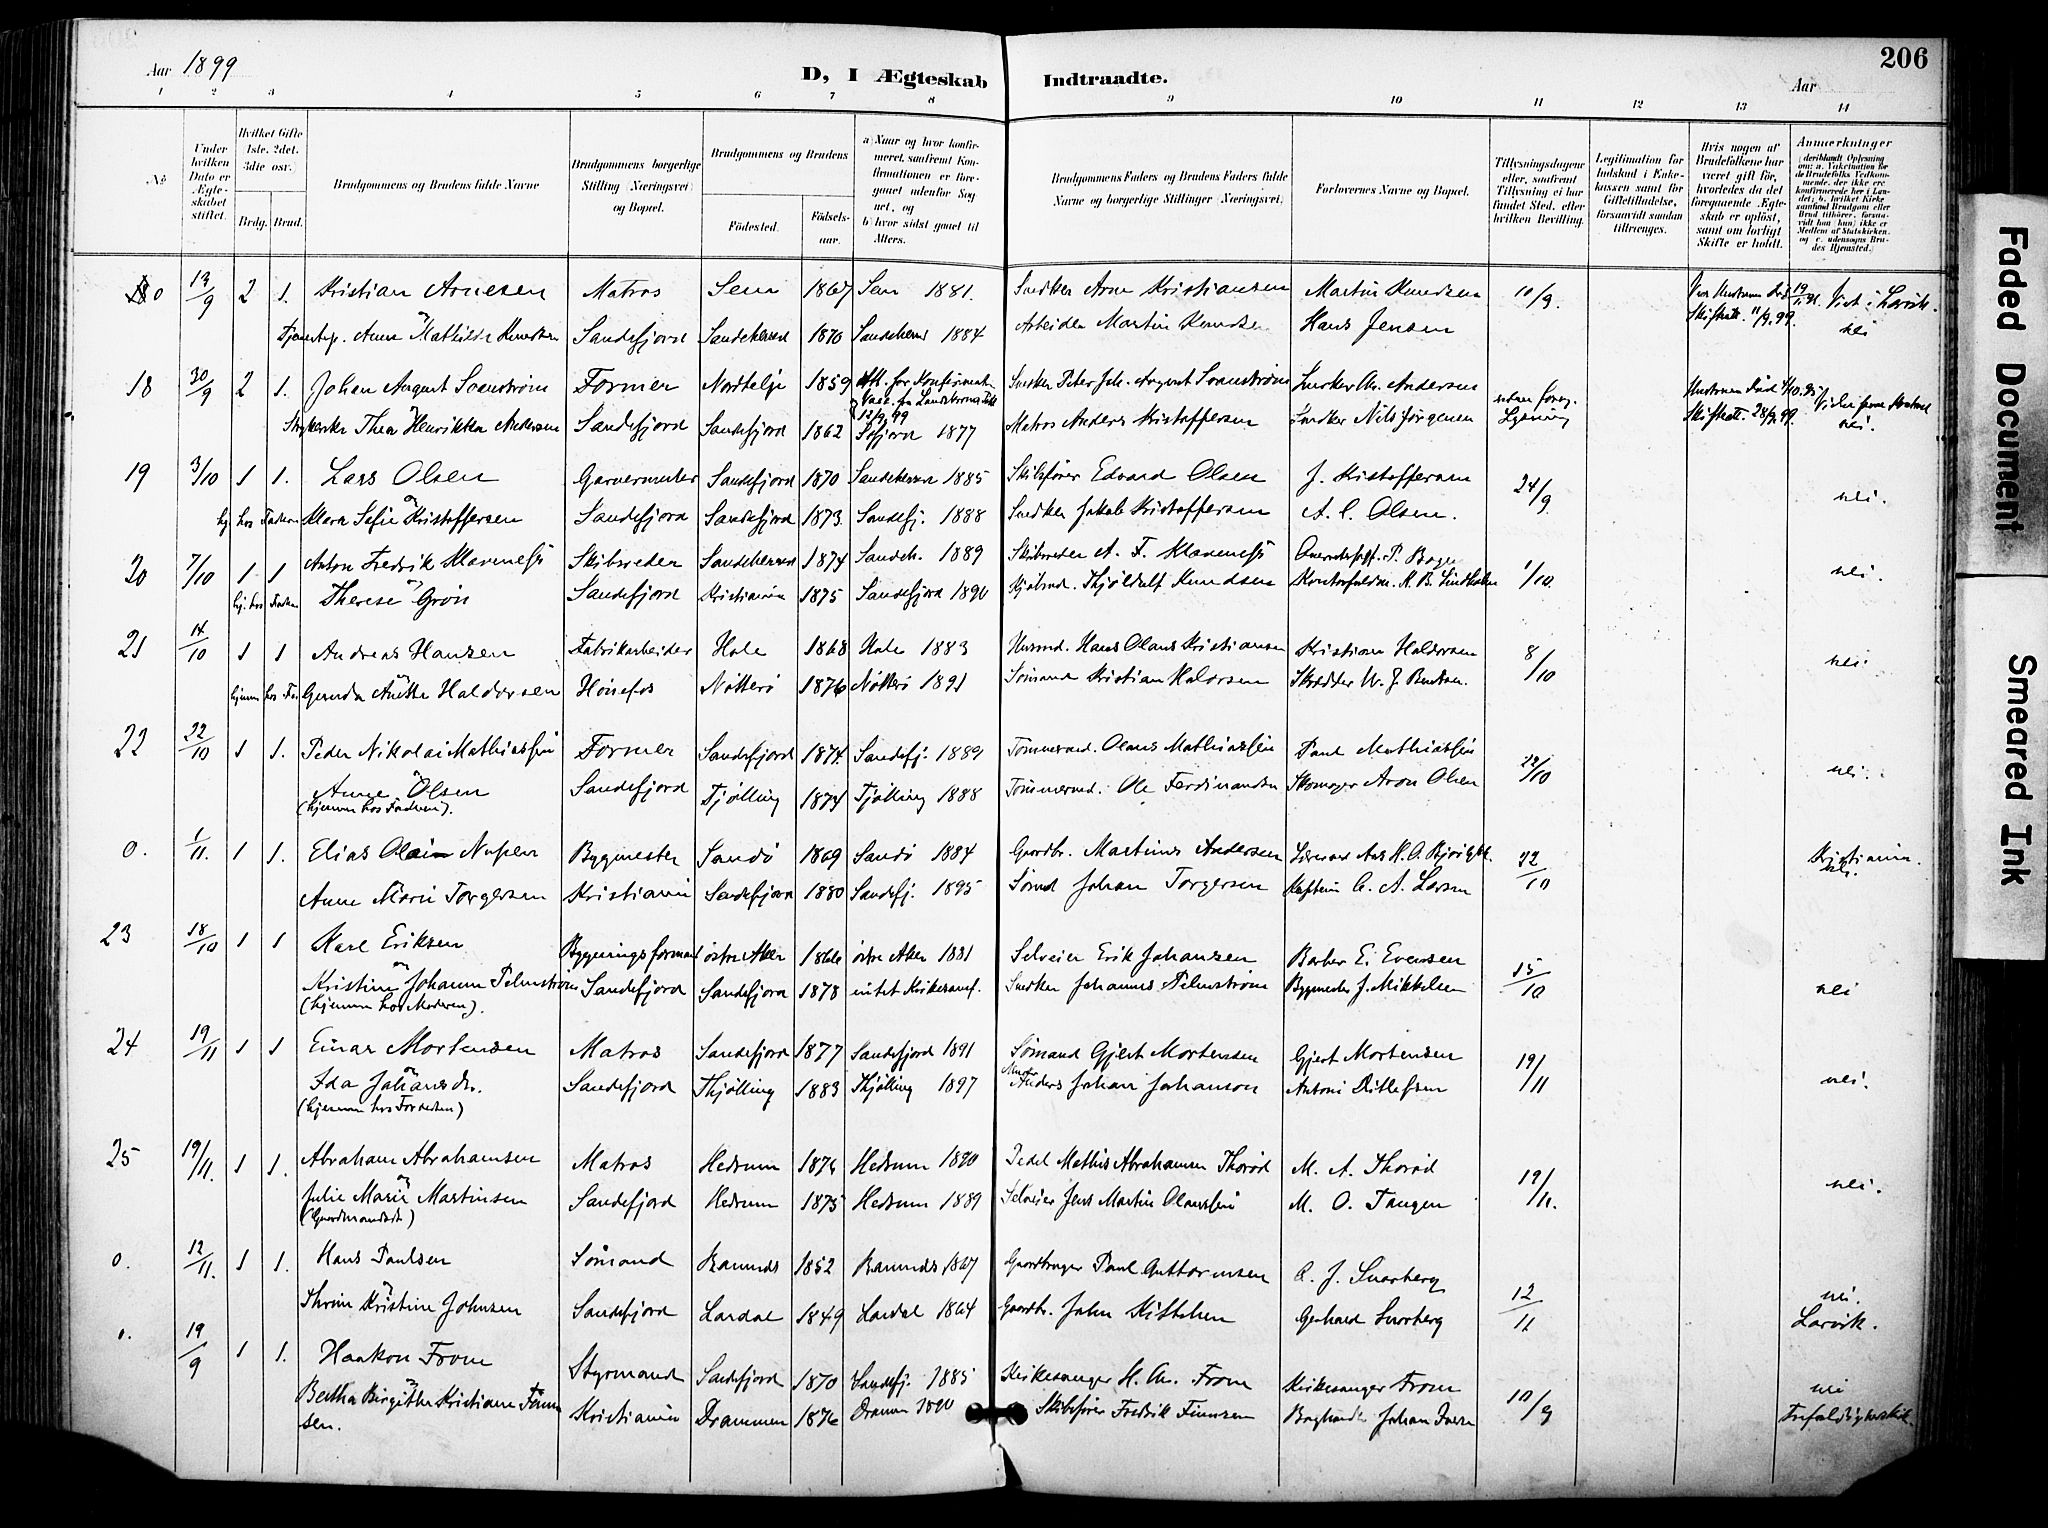 206
Aar 1899
D, I Ægteskab Indtraadte.
Aar
1 2 3 4 5 6 7 8 9 10 11 12 13 14
No
Under hvilken Dato er Ægteskabet stiftet.
Hvilket Gifte 1ste, 2det, 3die osv.
Brdg. Brud.
Brudgommens og Brudens fulde Navne
Brudgommens borgerlige Stilling (Næringsvei) og Bopæl.
Brudgommens og Brudens
Fødested. Fødselsaar.
a) Naar og hvor konfirmeret, samfremt Konfirmationen er foregaaet udenfor Sognet, og b) hvor sidst gaaet til Alters.
Brudgommens Faders og Brudens Faders fulde Navne og borgerlige Stillinger (Næringsvei).
Forlovernes Navne og Bopæl.
Tillysningsdagene eller, saafremt Tillysning ei har fundet Sted, efter hvilken Bevilling.
Legitimation for Indskud i Enkekassen samt for Giftetilladelse, forsaavidt saadan tiltrænges.
Hvis nogen af Brudefolkene har været gift før, hvorledes da det foregaaende Ægteskab er opløst, samt om lovligt Skifte er holdt.
Anmærkninger
0 13/9 2 1. Kristian Arnesen Matros Sem 1867 Sem 1881. Snedker Arne Kristiansen Martin Knudsen 10/9. Viet i Larvik.
Anne Mathilde Knudsen Sandefjord Sandeherred 1870 Sandeherred 1884 Arbeider Martin Knudsen Hans Jensen Skifteatt. 11/9.99. nei
18 30/9 2 1. Johan August Svanstrøm Former Nortelje 1859 Att. for Konfirmation Snedker Peter Joh. August Svanstrøm Snedker An. Andersen
12/9 99
Thea Henrikka Andersen Sandefjord Sandefjord 1862 Sefjord 1877 Matros Anders Kristoffersen Snedker Nils Jørgensen Lysning Skifteatt. 28/9.99. nei.
19 3/10 1 1. Lars Olsen Garvermester Sandefjord 1870 Sandeherred 1885 Skibsfører Edvard Olsen J. Kristoffersen 24/9 nei.
hj. hos Faderen Klara Sofie Kristoffersen Sandefjord Sandefjord 1873. Sandefj. 1888 Snedker Jakob Kristoffersen A. C. Olsen.
20 7/10 1 1 Anton Fredrik Klaveness Skibsreder Sandeherred 1874 Sandeh. 1889 Skibsreder A. F. Klaveness P. Bogen 1/10. nei.
hj. hos Faderen Therese Grøn Sandefjord Kristiania 1875 Sandefjord 1890 Kjøbmd. Thjøldulf Knudsen
21 14/10 1 1 Andreas Hansen Fabrikarbeider Hole 1868 Hole 1883 Husmd. Hans Olaus Kristiansen Kristian Haldorsen 8/10 nei.
hjemme hos Far. Gerunda Anette Haldorsen Hønefos Nøtterø 1876 Nøtterø 1891 Sømand Kristian Haldorsen Skrædder W. J. Bentsen.
22 22/10 1 1. Peder Nikolai Mathiassen Former Sandefjord 1874. Sandefj. 1889 Tømmermd. Olaus Mathiassen Paul Mathiassen 22/10 nei.
Anne Olsen Sandefjord Tjølling 1874 Tjølling 1888 Tømmermd. Ole Ferdinandsen Skomager Aron Olsen
(hjemme hos Faderen).
0. 1/11. 1 1. Elias Olai Nupen Bygmester Sandø 1869 Sandø 1884 Gaardbr. Martinus Andersen 22/10 Kristiania.
nei.
Anne Marie Torgersen Kristiania Sandefjord 1880 Sandefj. 1895 Sømd Johan Torgersen Kaptein C. A. Larsen
23 18/10 1 1 Karl Eriksen Bygningsformand østre Aker 1866 østre Aker 1881 Selveier Erik Johansen Barber E. Evensen 15/10 nei
Kristine Johanne Palmstrøm Sandefjord Sandefjord 1878 intet Kirkesamf. Snedker Johannes Palmstrøm Bygmester J. Mikkelsen
(hjemme hos Moderen).
24 19/11 1 1 Einar Mortensen Matros Sandefjord 1877 Sandefjord 1891 Sømand Gjert Mortensen Gjert Mortensen 19/11 nei.
Ida Johansdr. Sandefjord Thjølling 1883 Thjølling 1897 Anders Johan Johanson Antoni Ditlefsen
(hjemme hos Forældren)
25 19/11. 1 1. Abraham Abrahamsen Matros Hedrum 1874 Hedrum 1890 Pedel Mathis Abrahamsen Thorød M. A. Thorød 19/11. nei.
Julie Marie Martinsen Sandefjord Hedrum 1875 Hedrum 1889 Selveier Jens Martin Olaussen M. O. Tangen
(Gaardmandsdt)
0. 12/11. 1 1. Hans Paulsen Sømand Ramnæs 1852 Ramnæs 1867 Gaardbruger Paul Guttormsen A. J. Snarberg 12/11 nei.
Thrine Kristine Johnsen Sandefjord Lardal 1849 Lardal 1864 Gaardbr. John Kittelsen Gerhard Snarberg Larvik.
0. 19/9 1 1. Haakon From Styrmand Sandefjord 1870 Sandefj. 1885 Kirkesanger H. Chr. From Kirkesanger From 10/9 nei
Bertha Birgitte Kristiane Finnsen. Kristiania Drammen 1876 Drammen 1890 Skibsfører Fredrik Finnsen Boghandl. Johan Iversen Trefoldighedskirk.
Faded Document
Smeared Ink